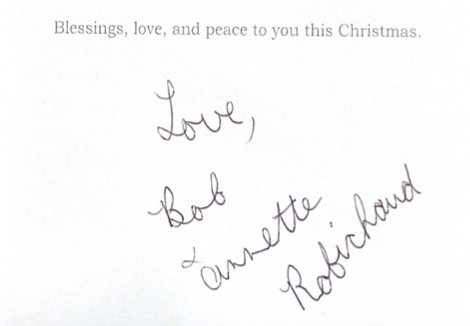 Blessings, love, and peace to you this Christmas.
Love,
Bob
& Annette
Robichaud